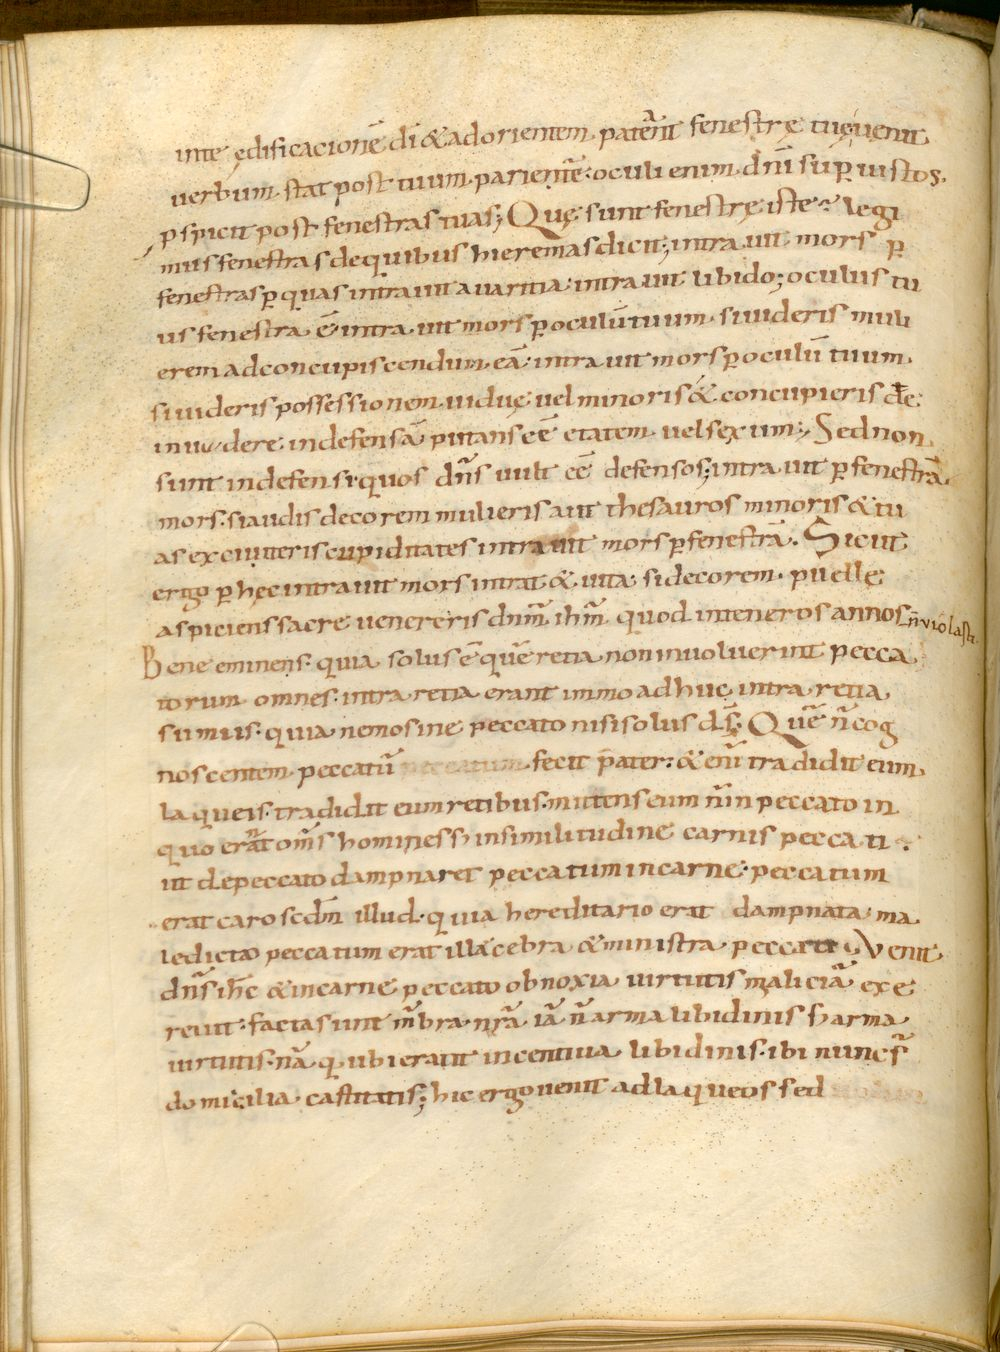 inte ędificacionē dī & ad orientem patēnt fenestrę tuę; uenit
uerbum stat post tuum parientē: oculi enim dn̄i sup̱ iustos.
p̱spicit post fenestras tuas; Quę sunt fenestrę iste? legi
mus fenestras de quibus hieremias dicit; intrauit mors p̱
fenestras p̱ quas intrauit auaritia: intrauit libido; oculus tu
us fenestra ē intrauit mors p̱ oculū tuum. si uideris muli
erem ad concupiscendum eā: intrauit mors p̱ oculū tuum.
si uideris possessionem uiduę uel minoris & concupieris
inuadere indefensā putans eē etatem uel sexum; Sed non
sunt indefensi quos dn̄s uult eē defensos; intrauit p̱ fenestrā
mors: si audis decorem mulieris aut thesauros minoris & tu
as exciuteris cupiditates intrauit mors p̱ fenestrā. Sicut
ergo p̱ hęc intrauit mors intrat & uita: si decorem puellę
aspiciens sacre uenereris dn̄m ih̄m quod in teneros annos n̄ violasti
Bene eminens: quia solus ē quē retia non inuoluerint pecca
torum omnes: intra retia erant immo adhuc intra retia
sumus: quia nemo sine peccato nisi solus d̄s. Quē n̄ cog
noscentem peccatū peccatum fecit pater: & enī tradidit eum
laqueis: tradidit eum retibus: mittens eum n̄ in peccato in
quo erānt om̄s homines sʒ in similitudine carnis peccati:
ut de peccato dampnaret peccatum in carne: peccatum
erat caro scd̄m illud: quia hereditario erat dampnata ma
ledicto peccatum erat illęcebra & ministra peccati; Venit
dn̄s ih̄c & in carne peccato obnoxia uirtutis maliciā exe
reuit: facta sunt m̄bra nr̄a iā n̄ arma libidinis sʒ arma
uirtutis: nā q ubi erant incentiua libidinis: ibi nunc s̄
domicilia castitatis; hic ergo uenit ad laqueos sed